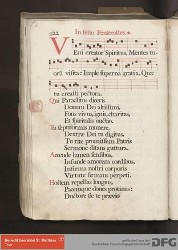 In festo Pentecostes
Veni creator Spiritus, Mentes tu-
orū visita: Imple superna gratia, Quæ
tu creasti pectora.
Qui Paraclitus diceris
Donum Dei altissimi,
Fons vivus, ignis, charitas,
Et spiritalis unctio.
Tu septiformis munere,
Dextræ Dei tu digitus,
Tu rite promissum Patris
Sermone ditans guttura.
Accende lumen sensibus,
Infunde amorem cordibus,
Infirma nostri corporis
Virtute firmans perpeti.
Hostem repellas longius,
Pacemque dones protinus:
Ductore sic te prævio
DFG